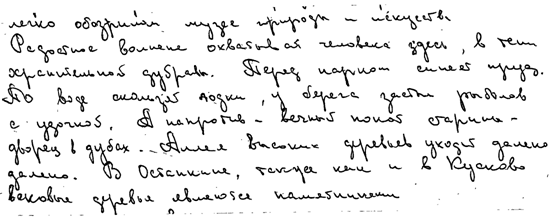 легко обозримом музее природы и искусств.
Радостное волнение охватывает человека здесь, в тени
хранительной дубравы. Перед парком синеет пруд.
По воде скользят лодки, у берега застыл рыболов
с удочкой. А напротив - вечный покой старины -
дворец в дубах... Аллея высоких деревьев уходит далеко
далеко. В Останкине, также как и в Кусково
вековые деревья являются памятниками